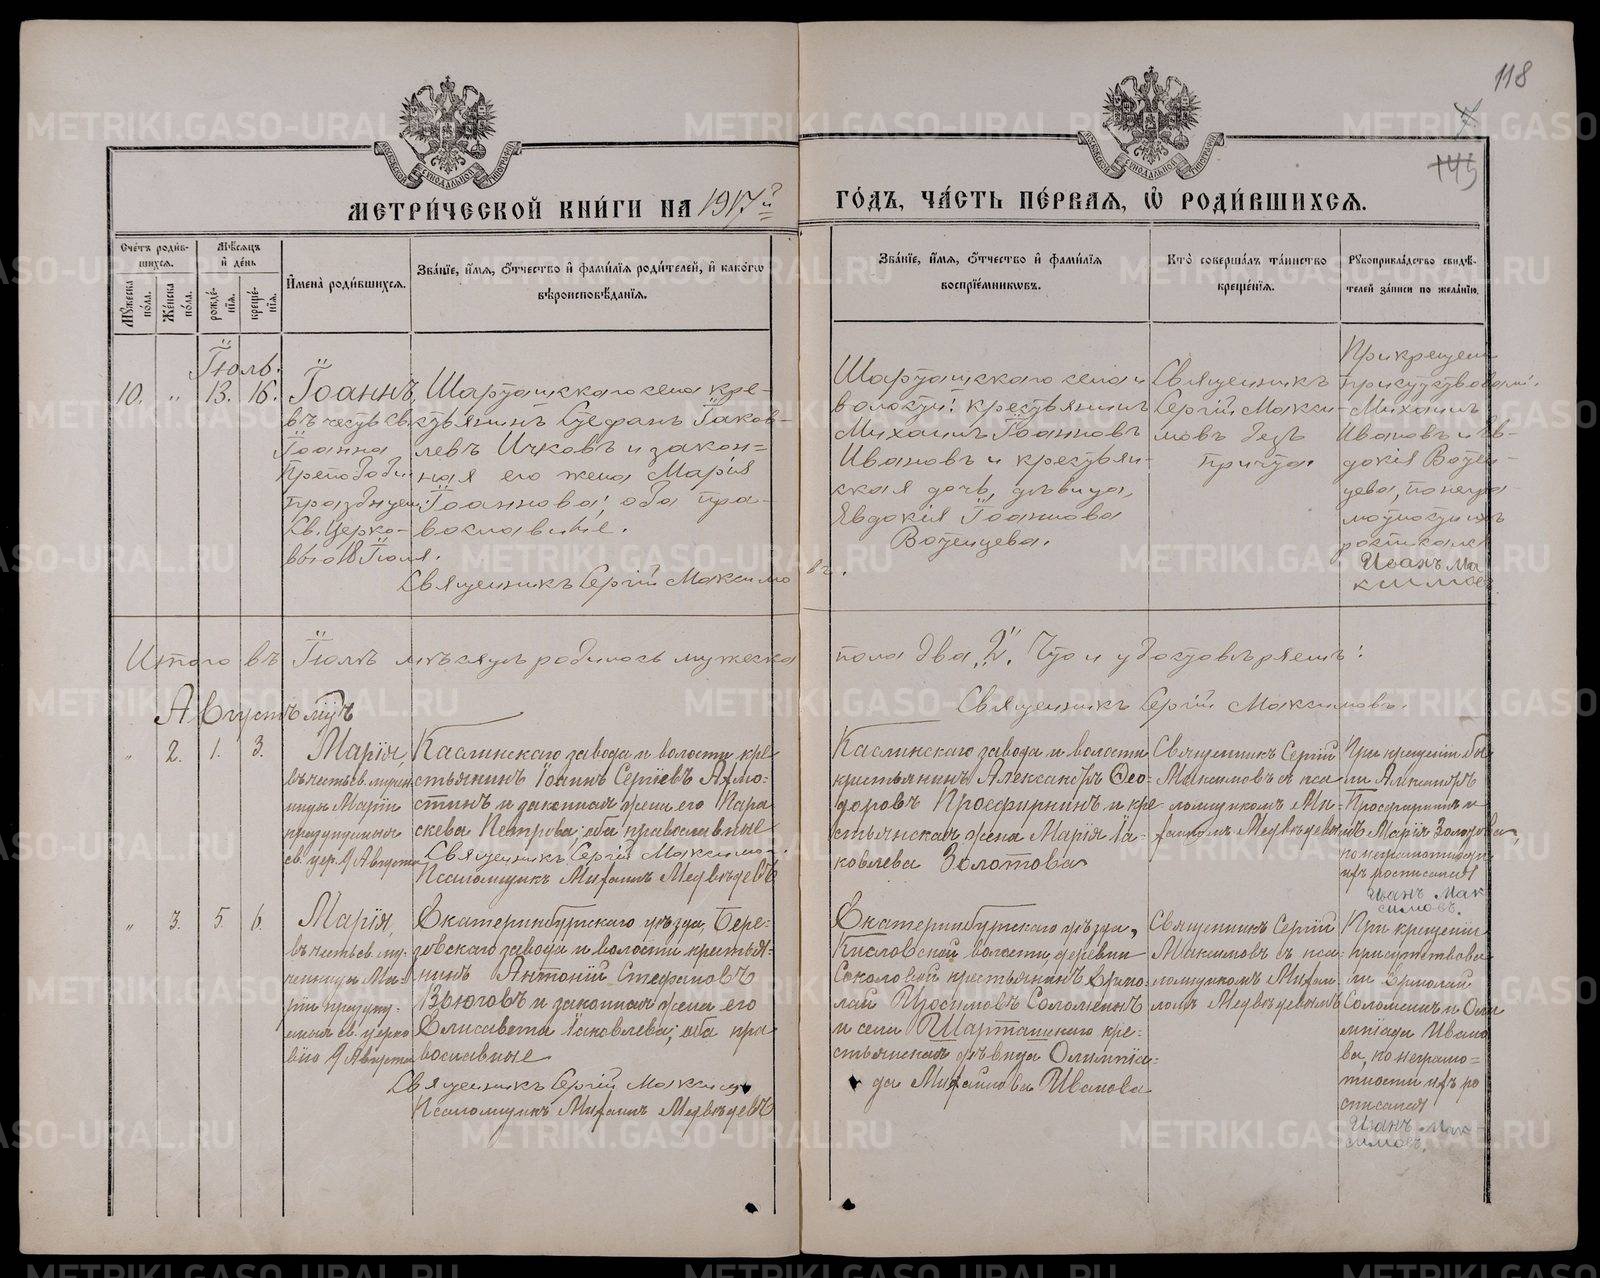 118
145
МЕТРИ́ЧЕСКОЙ КНИ́ГИ НА 1917й
ГО́ДЪ, ЧА́СТЬ ПЕ́РВАЯ, Ѡ҆ РОДИ́ВШИХСЯ.
Сче́тъ роди́в-
шихся.
Мѣ́сяцъ
и҆ де́нь
Му́жеска
по́ла.
Же́нска
по́ла.
рожде́-
нїя.
креще́-
нїя.
И҆мена̀ роди́вшихся.
Зва́нїе, и҆́мя, ѻ҆́тчество и҆ фами́лїя роди́телей, и҆ како́гѡ
вѣроисповѣ́данїя.
Зва́нїе, и҆́мя, ѻ҆́тчество и҆ фами́лїя
воспрїе́мниковъ.
Кто̀ соверша́лъ та́инство
креще́нїя.
Рꙋкоприкла́дство свидѣ́-
телей за́писи по жела́нїю.
Іюль.
10. „ 13. 16.
Іоаннъ,
въ честь св.
Іоанна
Преподобн.
празднуем.
Св. Церко-
вью 18 Іюля.
Шарташскаго села кре-
стьянинъ Стефанъ Іаков-
левъ Ичковъ и закон-
ная его жена Марія
Іоаннова; оба пра-
вославные.
Священникъ Сергій Максимовъ.
Шарташскаго села и
волости: крестьянинъ
Михаилъ Іоанновъ
Ивановъ и крестьян-
ская дочь, дѣвица,
Евдокія Іоаннова
Вотенцева.
Священникъ
Сергій Макси-
мовъ безъ
причта.
При крещеніи
присутствовали:
Михаилъ
Ивановъ и Ев-
докія Вотен-
цева, по негра-
мотности ихъ
росписался
Иванъ Ма
ксимовъ
Итого въ Іюлѣ мѣсяцѣ родилось мужеска пола два „2“. Что и удостовѣряетъ:
Священникъ Сергій Максимовъ.
Августъ мцъ
„ 2. 1. 3.
Марія,
въ честь св. мучен
ицы Маріи
празднуемыя
св. цер. 9 Августа
Каслинскаго завода и волости кре-
стьянинъ Іоаннъ Сергіевъ Ахмо-
стинъ и законная жена его Пара
скева Петрова; оба православные
Священникъ Сергій Максимов.
Псаломщикъ Михаилъ Медвѣдевъ
Каслинскаго завода и волости
крестьянинъ Александръ Ѳео-
доровъ Просфирнинъ и кре
стьянская жена Марія Іа-
ковлева Золотова
Священникъ Сергій
Максимовъ съ пса
ломщикомъ Ми-
хаиломъ Медвѣдевымъ
При крещеніи бы
ли Александръ
Просфирнинъ и
Марія Золотова,
по неграмотности
ихъ росписался
Иванъ Мак
симовъ.
„ 3. 5. 6.
Марія,
въ честь св. му-
ченицы Ма-
ріи праздну-
емыя св. церко
вію 9 Августа
Екатеринбургскаго уѣзда, Бере-
зовскаго завода и волости крестья-
нинъ Антоній Стефановъ
Вьюговъ и законная жена его
Елисавета Іаковлева; оба пра
вославные
Священникъ Сергій Максимовъ
Псаломщикъ Михаилъ Медвѣдевъ
Екатеринбургскаго уѣзда,
Кисловской волости, деревни
Соколовой крестьянинъ Ермо-
лай Изосимовъ Соломеинъ
и села Шарташскаго кре-
стьянская дѣвица Олимпіа-
да Михаилова Иванова
Священникъ Сергій
Максимовъ съ пса-
ломщикомъ Михаи
ломъ Медвѣдевымъ
При крещеніи
присутствова
ли Ермолай
Соломеинъ и Оли
мпіада Ивано
ва, по неграмо-
тности ихъ ро
списался
Иванъ Мак-
симовъ.